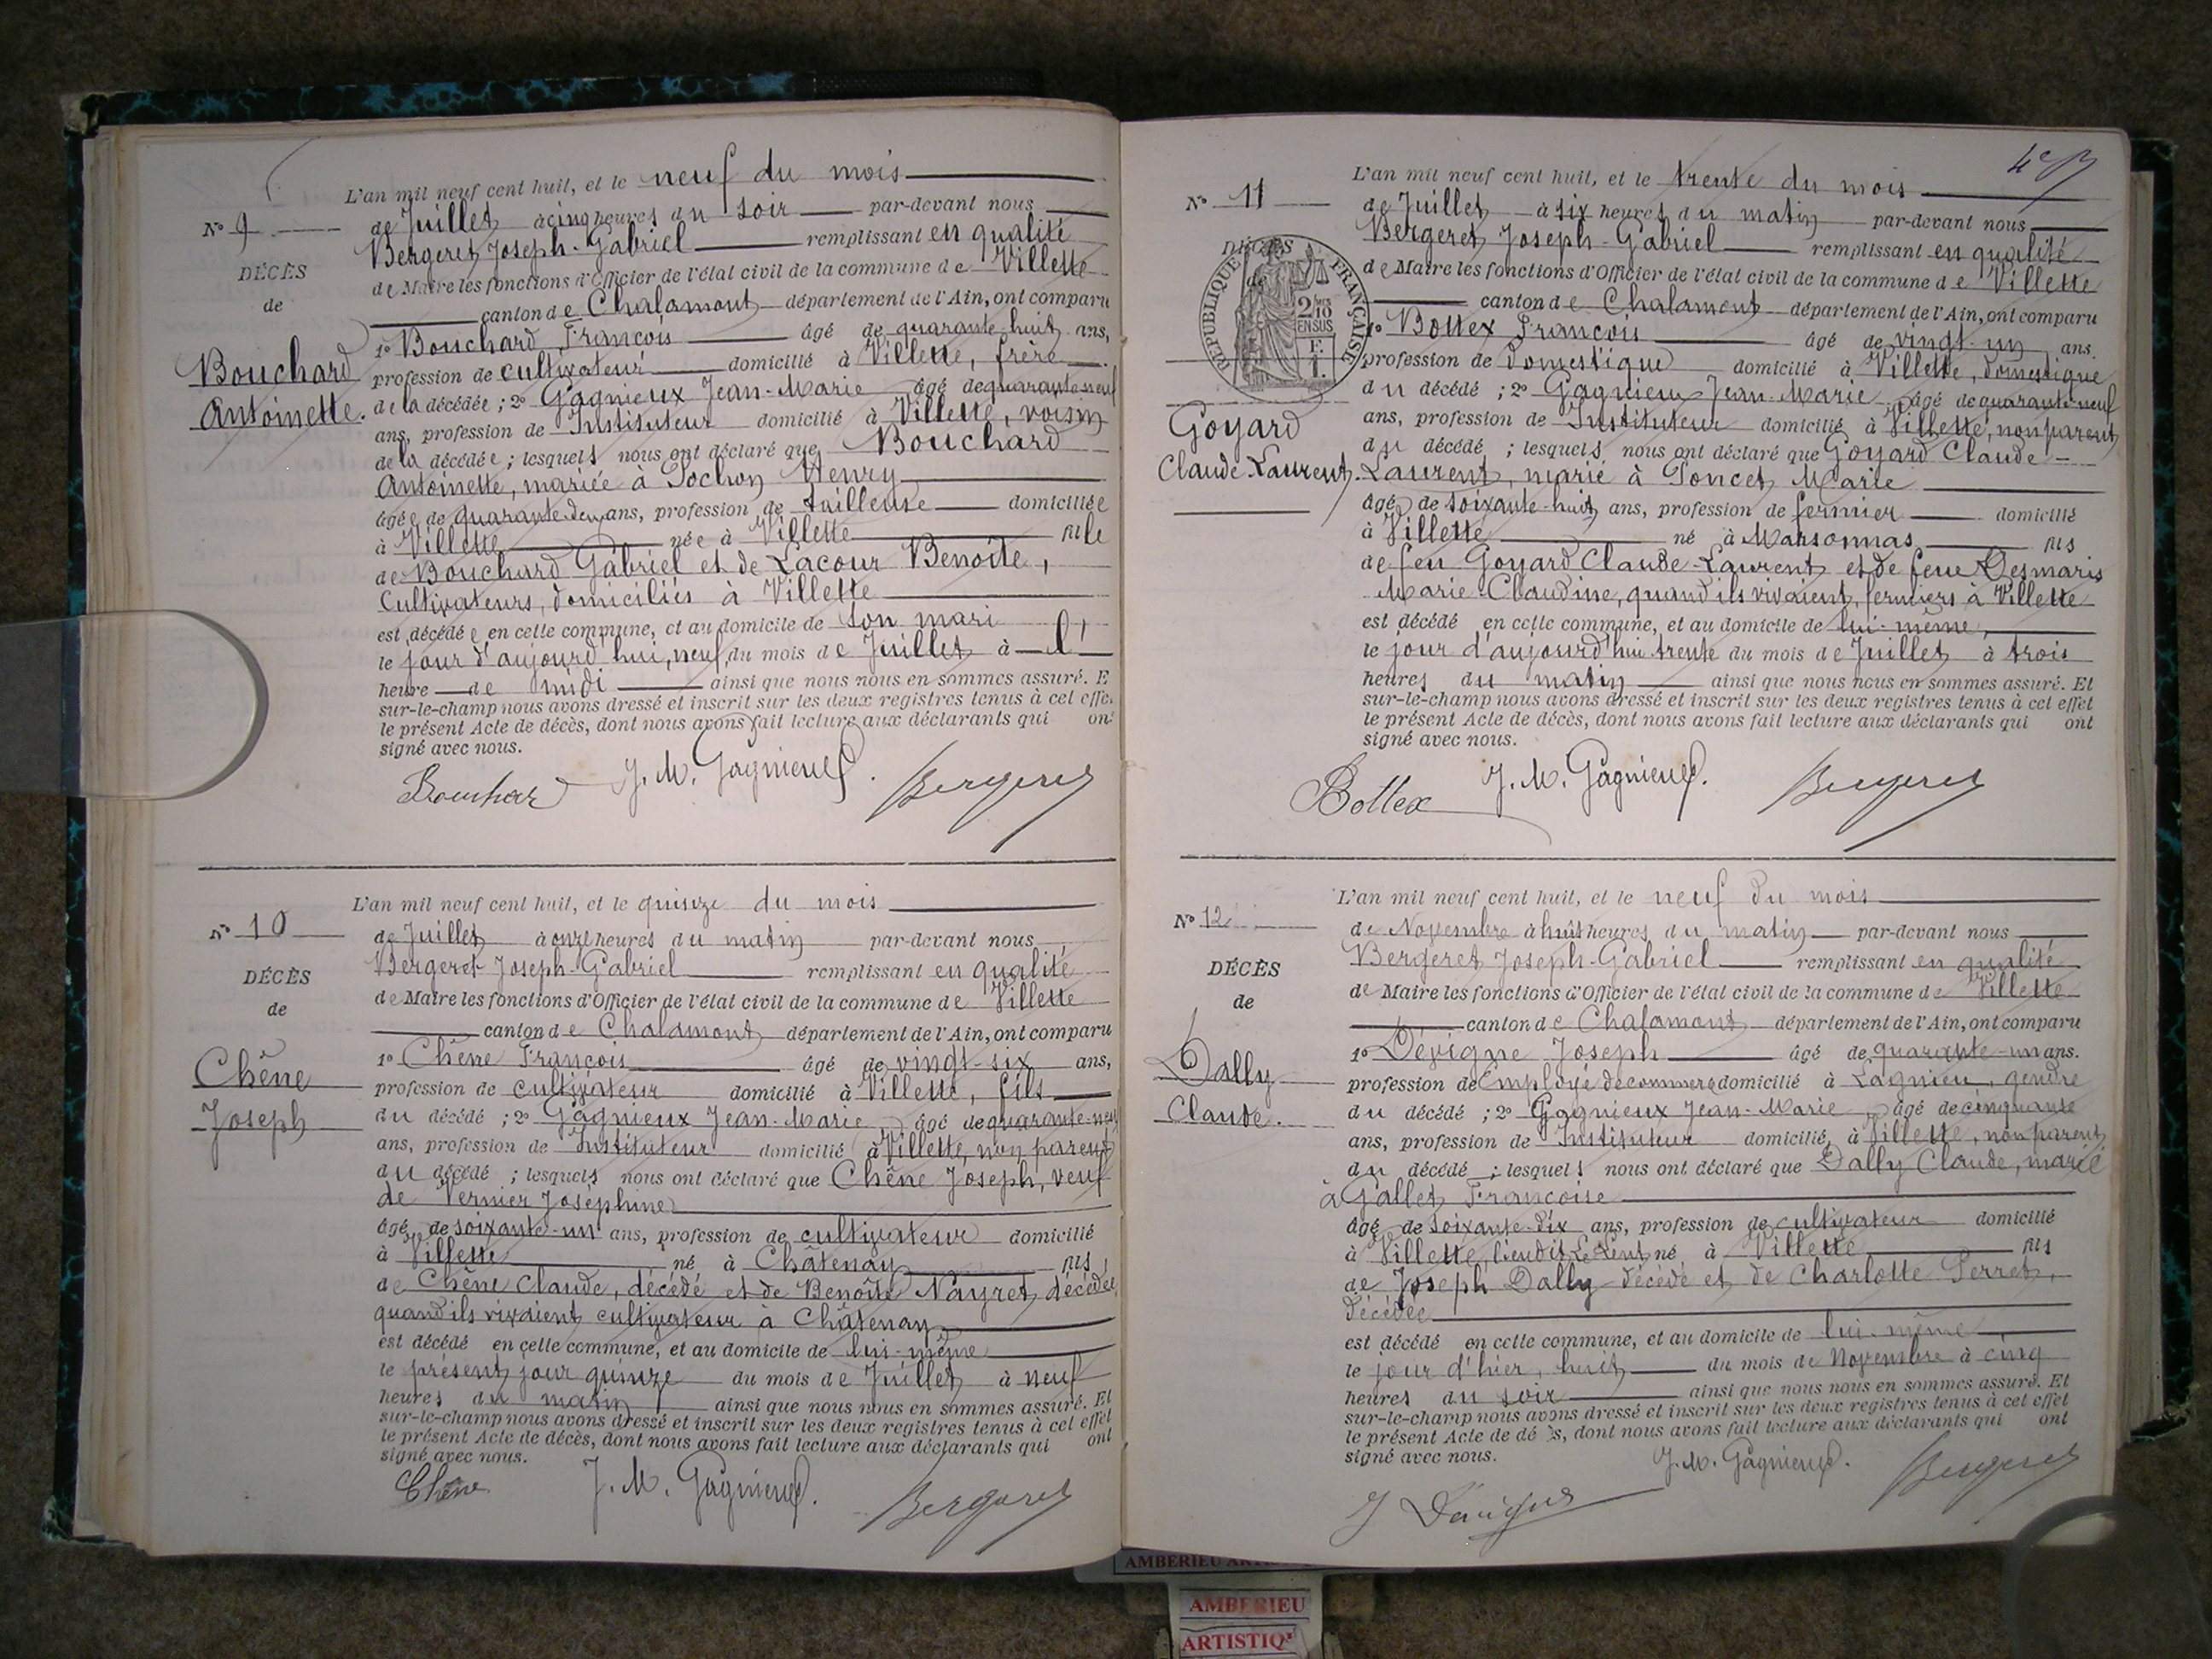 L'an mil neuf cent huit, et le neuf du mois
N° 9
de Juillet à cinq heures du soir par-devant nous
Bergeret Joseph-Gabriel remplissant en qualité
DÉCÈS
de Maire les fonctions d'Officier de l'état civil de la commune de Villette
de
canton de Chalamont département de l'Ain, ont comparu
1° Bouchard François âgé de quarante-huit ans,
Bouchard
profession de cultivateur domicilié à Villette, frère
Antoinette.
de la décédée ; 2° Gagnieux Jean-Marie âgé de quarante-neuf
ans, profession de Instituteur domicilié à Villette, voisin
de la décédée ; lesquels nous ont déclaré que Bouchard
Antoinette, mariée à Henry
âgée de quarante-deux ans, profession de tailleuse domiciliée
à Villette née à Villette fille
de Bouchard Gabriel et de Lacour Benoîte,
Cultivateurs, domiciliés à Villette
est décédée en cette commune, et au domicile de son mari
le jour d'aujourd'hui, neuf du mois de Juillet à l'
heure de midi ainsi que nous nous en sommes assuré. E
sur-le-champ nous avons dressé et inscrit sur les deux registres tenus à cet effe
le présent Acte de décès, dont nous avons fait lecture aux déclarants qui ont
signé avec nous.
Bouchard J. M. Gagnieux. Bergeret
L'an mil neuf cent huit, et le quinze du mois
N° 10
de Juillet à onze heures du matin par-devant nous
Bergeret Joseph-Gabriel remplissant en qualité
DÉCÈS
de Maire les fonctions d'Officier de l'état civil de la commune de Villette
de
canton de Chalamont département de l'Ain, ont comparu
1° Chêne François âgé de vingt-six ans,
Chêne
profession de cultivateur domicilié à Villette, fils
Joseph
du décédé ; 2° Gagnieux Jean-Marie, âgé de quarante-neuf
ans, profession de Instituteur domicilié à Villette, non parent
du décédé ; lesquels nous ont déclaré que Chêne Joseph, veuf
de Vernier Joséphine
âgé de soixante-un ans, profession de cultivateur domicilié
à Villette né à Châtenay fils
de Chêne Claude, décédé et de Benoîte Nayret, décédée
quand ils vivaient cultivateur à Châtenay
est décédé en cette commune, et au domicile de lui-même
le présent jour quinze du mois de Juillet à neuf
heures du matin ainsi que nous nous en sommes assuré. Et
sur-le-champ nous avons dressé et inscrit sur les deux registres tenus à cet effet
le présent Acte de décès, dont nous avons fait lecture aux déclarants qui ont
signé avec nous.
Chêne J. M. Gagnieux. Bergeret
L'an mil neuf cent huit, et le trente du mois
N° 11
de Juillet à six heures du matin par-devant nous
Bergeret Joseph-Gabriel remplissant en qualité
DÉCÈS
RÉPUBLIQUE FRANÇAISE
2/10 EN SUS
de Maire les fonctions d'Officier de l'état civil de la commune de Villette
canton de Chalamont département de l'Ain, ont comparu
1° Bottex François âgé de vingt-un ans.
profession de domestique domicilié à Villette, domestique
du décédé ; 2° Gagnieux Jean-Marie, âgé de quarante-neuf
Goyard
ans, profession de Instituteur domicilié à Villette, non parent
du décédé ; lesquels nous ont déclaré que Goyard Claude-
Claude-Laurent.
Laurent, marié à Poncet Marie
âgé de soixante-huit ans, profession de fermier domicilié
à Villette né à Marsonnas fils
de feu Goyard Claude-Laurent et de feue Desmaris
Marie-Claudine, quand ils vivaient, fermiers à Villette
est décédé en cette commune, et au domicile de lui-même,
le jour d'aujourd'hui trente du mois de Juillet à trois
heures du matin ainsi que nous nous en sommes assuré. Et
sur-le-champ nous avons dressé et inscrit sur les deux registres tenus à cet effet
le présent Acte de décès, dont nous avons fait lecture aux déclarants qui ont
signé avec nous.
Bottex J. M. Gagnieux. Bergeret
L'an mil neuf cent huit, et le neuf du mois
N° 12
de Novembre à huit heures du matin par-devant nous
Bergeret Joseph-Gabriel remplissant en qualité
DÉCÈS
de Maire les fonctions d'Officier de l'état civil de la commune de Villette
de
canton de Chalamont département de l'Ain, ont comparu
1° Dévigne Joseph âgé de quarante-un ans.
Dally
profession de Employé de commerce domicilié à Lagnieu, gendre
Claude.
du décédé ; 2° Gagnieux Jean-Marie, âgé de cinquante
ans, profession de Instituteur domicilié à Villette, non parent
du décédé ; lesquels nous ont déclaré que Dally Claude, marié
à Gallet Françoise
âgé de soixante-dix ans, profession de cultivateur domicilié
à Villette, lieu dit né à Villette fils
de Joseph Dally décédé et de Charlotte Perret,
décédée
est décédé en cette commune, et au domicile de lui-même
le jour d'hier, huit du mois de Novembre à cinq
heures du soir ainsi que nous nous en sommes assuré. Et
sur-le-champ nous avons dressé et inscrit sur les deux registres tenus à cet effet
le présent Acte de dé s, dont nous avons fait lecture aux déclarants qui ont
signé avec nous.
J. M. Gagnieux. Bergeret
J Dévigne
AMBERIEU
AMBERIEU
ARTISTIQ